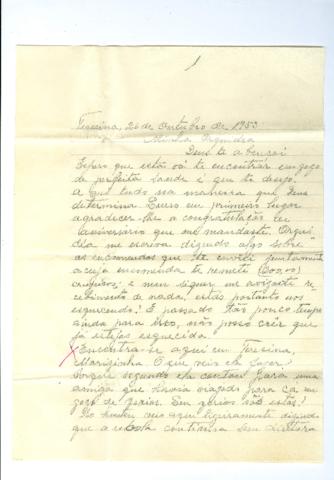 1
Teresina, 26 de Outubro de 1953
Minha Orquidea
Deus te abençoi
Espero que esta vá te encontrar em gozo
de perfeita saude é que te desejo.
A que tudo na maneira que Deus
determina. Quero em primeiro lugar
agradecer-lhe a congratulação
aniversário que me mandaste. Orqui
dia me escreva dizendo algo sobre
as encomendas que lhe enviei juntamente
a cuja encomenda te remeti (200,00)
cruzeiros; e nem siquer me avizaste re
cebimento de nada, estás portanto nos
esquecendo! É passado tão pouco tempo
ainda para isso, não posso crer que
já estejas esquecida.
Encontra-se aqui em Teresina,
Mariginha. O que veio ela fazer!
segundo ela contou para uma
amiga que havia viajado para cá em
gozo de ferias. Sem
aqui ligeiramente dizendo
que a escola continua sem diretora